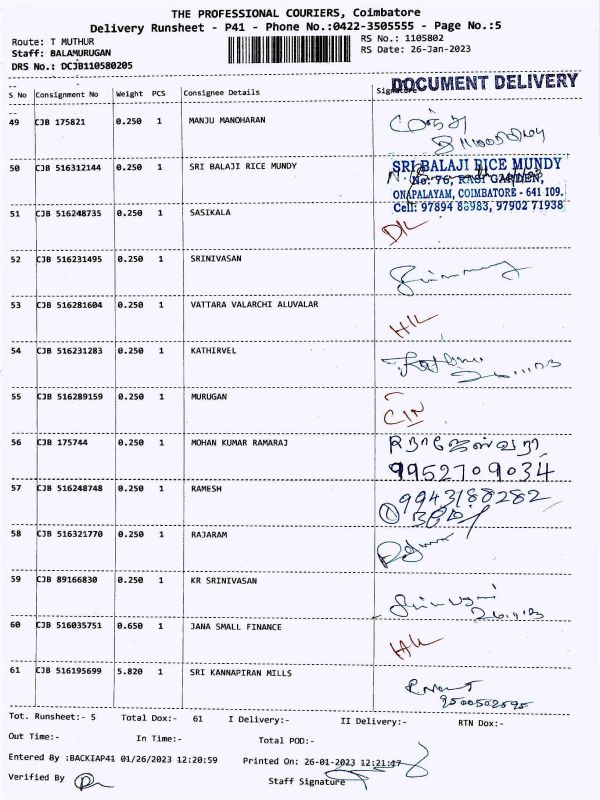 THE PROFESSIONAL COURIERS, Coimbatore
Delivery Runsheet - P41 - Phone No.:0422-3505555 - Page No.:5
Route: T MUTHUR
RS No.: 1105802
Staff: BALAMURUGAN
RS Date: 26-Jan-2023
DRS No.: DCJB110580205
DOCUMENT DELIVERY
S No Consignment No Weight PCS Consignee Details Signature
49 CJB 175821 0.250 1 MANJU MANOHARAN
50 CJB 516312144 0.250 1 SRI BALAJI RICE MUNDY
SRI BALAJI RICE MUNDY
No: 76, RASI GARDEN,
ONAPALAYAM, COIMBATORE - 641 109.
Cell: 97894 83983, 97902 71938
51 CJB 516248735 0.250 1 SASIKALA DIL
52 CJB 516231495 0.250 1 SRINIVASAN
53 CJB 516281604 0.250 1 VATTARA VALARCHI ALUVALAR HIL
54 CJB 516231283 0.250 1 KATHIRVEL
55 CJB 516289159 0.250 1 MURUGAN CIN
56 CJB 175744 0.250 1 MOHAN KUMAR RAMARAJ
9952709034
57 CJB 516248748 0.250 1 RAMESH 9943188282
58 CJB 516321770 0.250 1 RAJARAM
59 CJB 89166830 0.250 1 KR SRINIVASAN
60 CJB 516035751 0.650 1 JANA SMALL FINANCE
61 CJB 516195699 5.820 1 SRI KANNAPIRAN MILLS
9500502595
Tot. Runsheet:- 5 Total Dox:- 61 I Delivery:- II Delivery:- RTN Dox:-
Out Time:- In Time:- Total POD:-
Entered By :BACKIAP41 01/26/2023 12:20:59 Printed On: 26-01-2023 12:21:17
Verified By Staff Signature